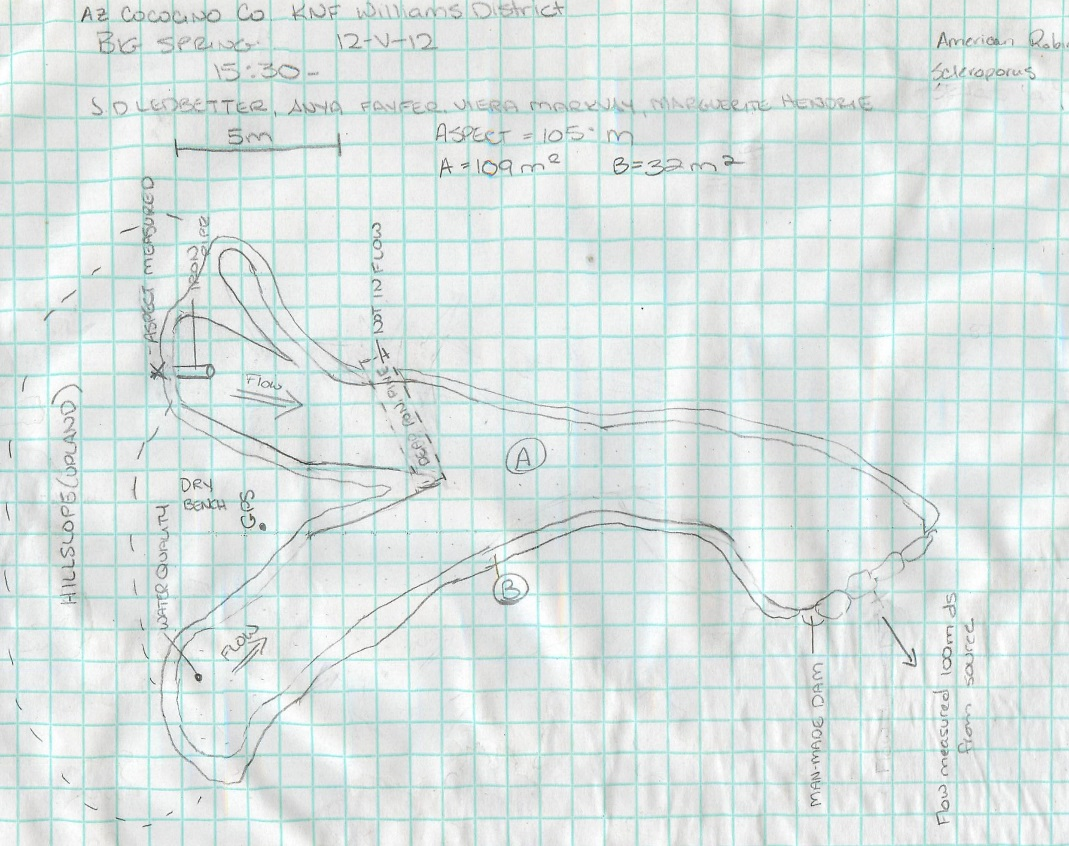 AZ COCOCINO CO KNF Williams District
BIG SPRING 12-V-12
15:30-
American
Sceloporus
S D LEDBETTER, ANYA FAYFER, VIERA MARKVAY, MARGUERITE HENDRIE
5m
ASPECT = 105° M
A = 109 m² B = 32 m²
X - ASPECT MEASURED
IRON PIPE
NOT IN FLOW
FLOW
DEAD PINE
A
HILLSLOPE (UPLAND)
DRY
BENCH
GPS
WATER QUALITY
B
FLOW
MAN-MADE DAM
Flow measured 100m ds
from source